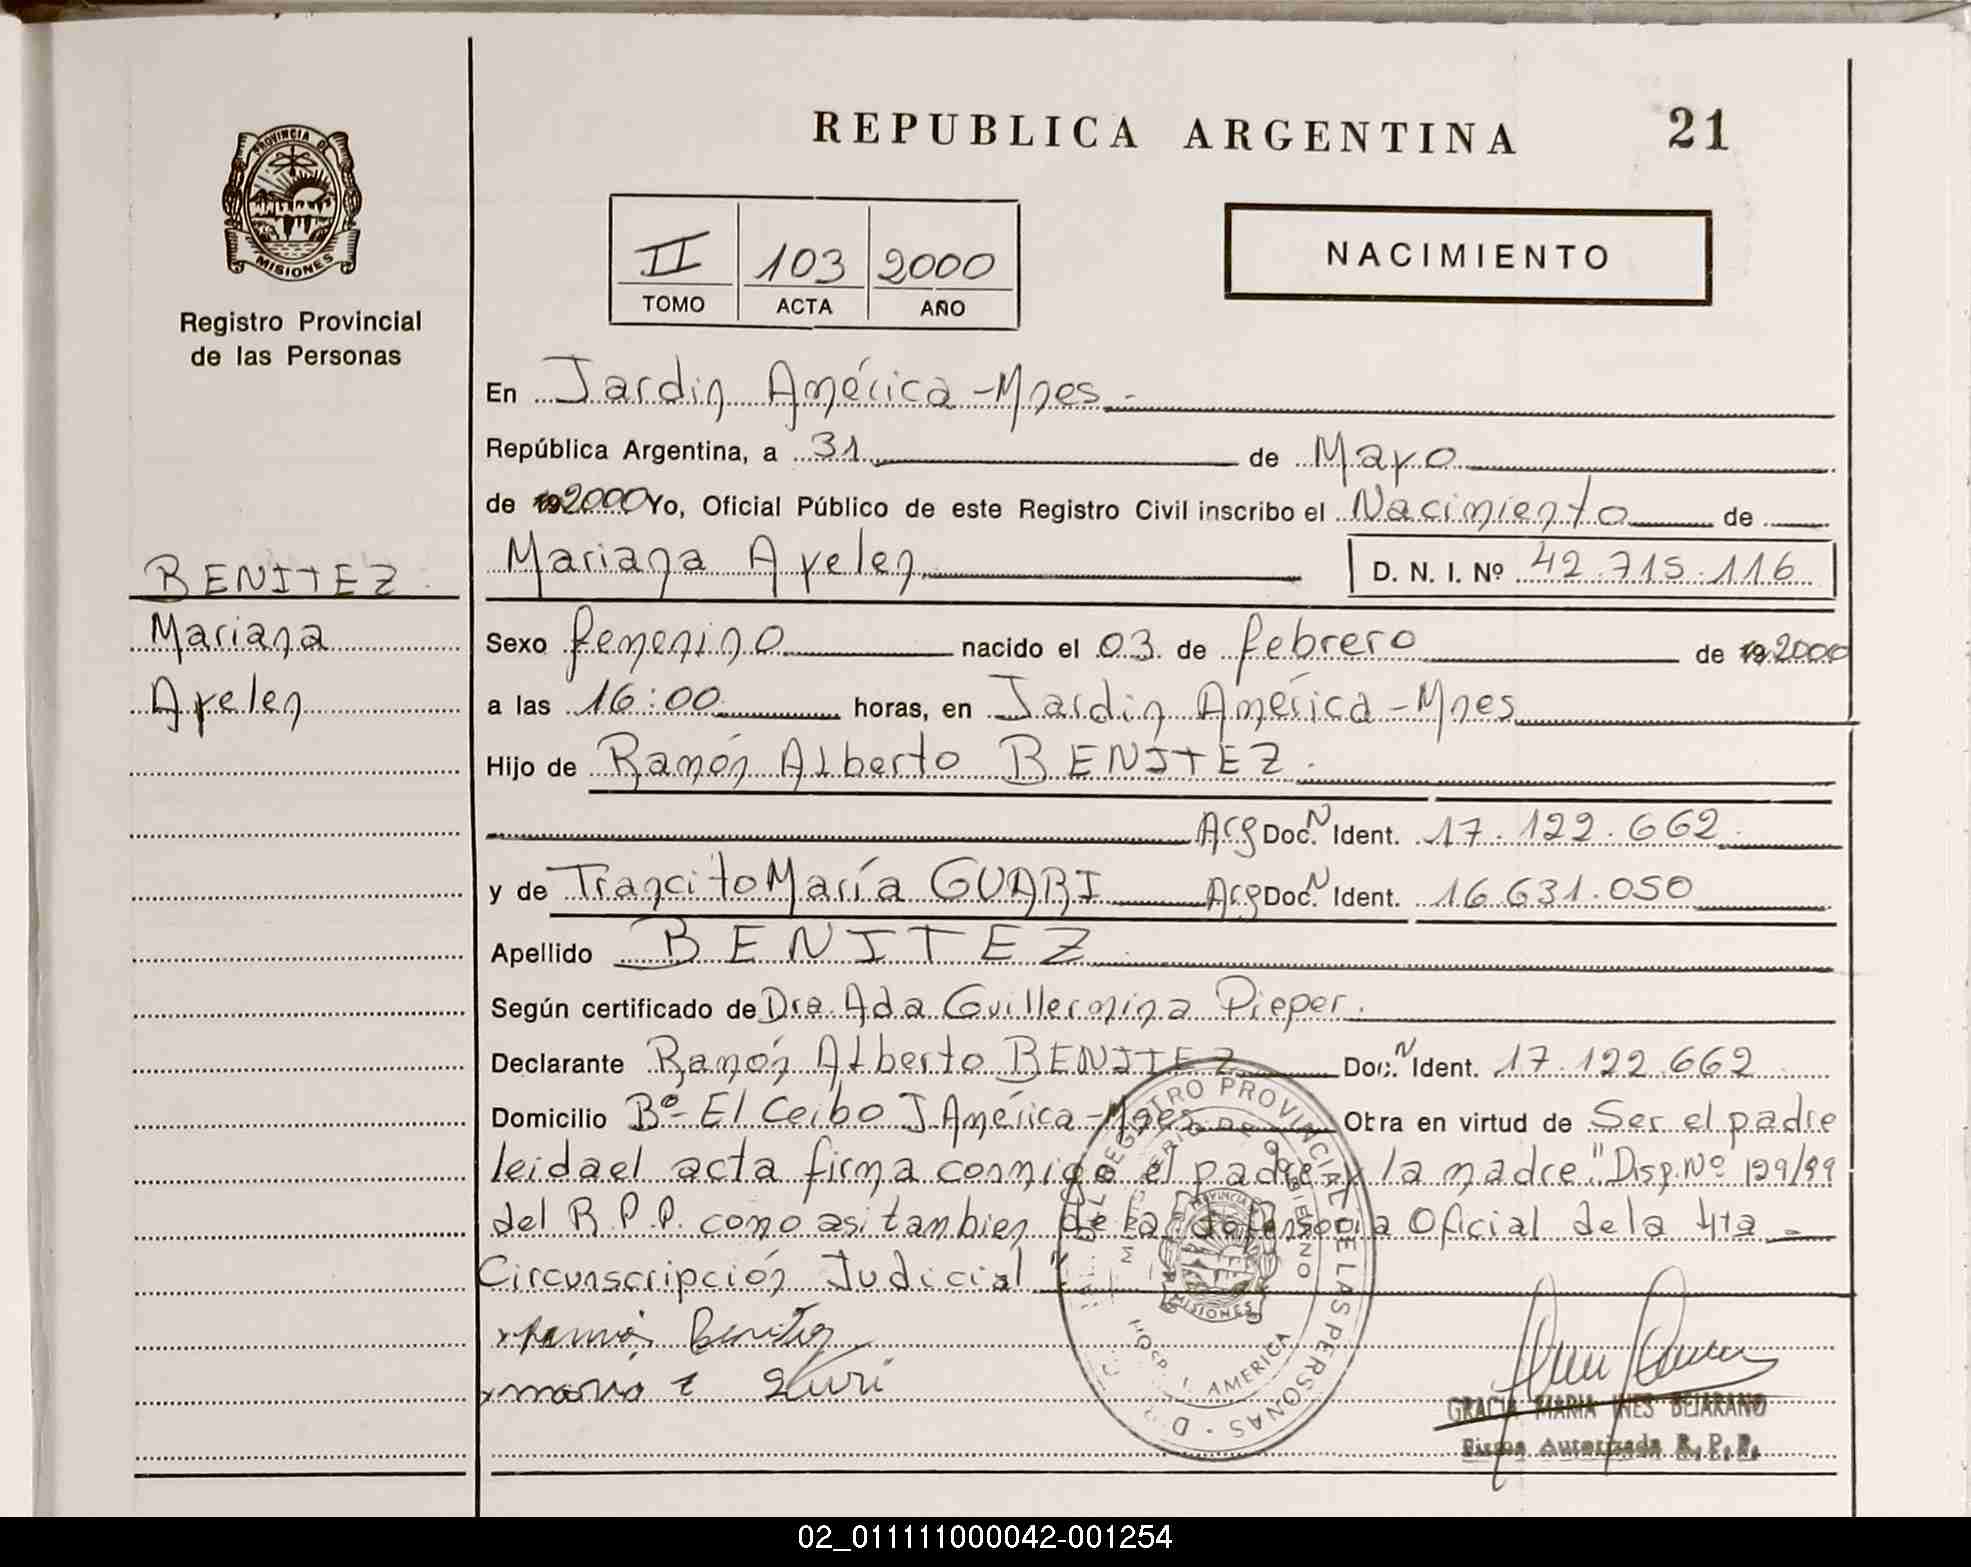 REPUBLICA ARGENTINA
21
PROVINCIA DE
MISIONES
Registro Provincial
de las Personas
II 103 2000
TOMO ACTA AÑO
NACIMIENTO
En Jardin América - Mnes. -
República Argentina, a 31 de Mayo
de 19 2000 Yo, Oficial Público de este Registro Civil inscribo el Nacimiento de
Mariana Ayelen D. N. I. Nº 42.715.116
BENITEZ.
Mariana
Ayelen
Sexo femenino nacido el 03 de febrero de 19 2000
a las 16:00 horas, en Jardin América - Mnes
Hijo de Ramón Alberto BENITEZ.
Arg Doc. N Ident. 17.122.662.
y de Trancito María GUARI Arg Doc. N Ident. 16.631.050
Apellido BENITEZ
Según certificado de Dra. Ada Guillermina Pieper.
Declarante Ramón Alberto BENITEZ Doc. N Ident. 17.122.662
Domicilio Bº - El Ceibo J América - Mnes Obra en virtud de Ser el padre
leida el acta firma conmigo el padre y la madre. "Disp. Nº 129/99
del R.P.P. como asi tambien de la defensoria Oficial de la 4ta
Circunscripción Judicial"
REGISTRO PROVINCIAL DE LAS PERSONAS
MINISTERIO DE GOBIERNO
PROVINCIA
MISIONES
HOSP. J. AMERICA
Benitez
maria
GRACIA MARIA INES BEJARANO
Firma Autorizada R.P.P.
02_011111000042-001254